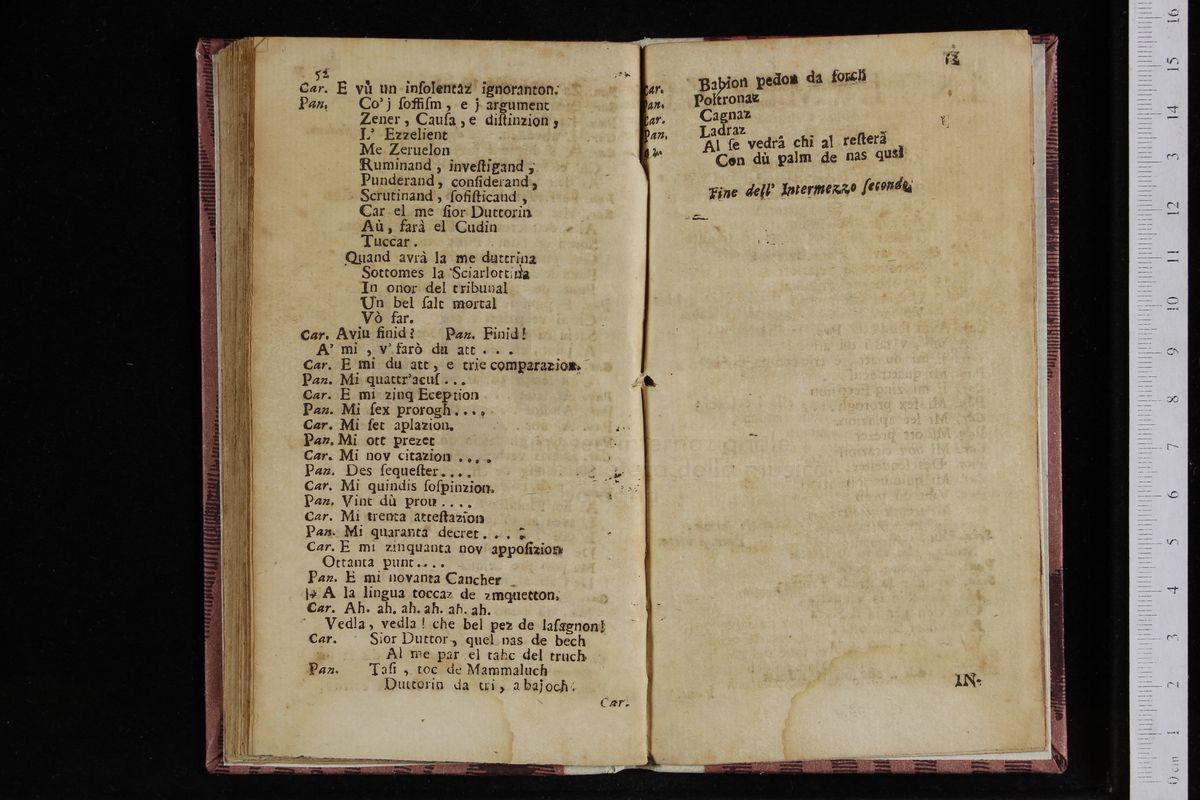 52
Car. E vù un insolentaz ignoranton.
Pan. Co' j soffism, e j argument
Zener, Causa, e distinzion,
L' Ezzelient
Me Zeruelon
Ruminand, investigand,
Punderand, considerand,
Scrutinand, sofisticand,
Car el me sior Duttorin
Aù, farà el Cudin
Tuccar.
Quand avrà la me duttrina
Sottomes la Sciarlottina
In onor del tribunal
Un bel salt mortal
Vò far.
Car. Aviu finid? Pan. Finid!
A' mi, v' farò du att . . .
Car. E mi du att, e trie comparazion.
Pan. Mi quattr'acus . . .
Car. E mi zinq Eception
Pan. Mi sex prorogh. . . .
Car. Mi set aplazion.
Pan. Mi ott prezet
Car. Mi nov citazion . . . .
Pan. Des sequester. . . .
Car. Mi quindis sospinzion.
Pan. Vint dù prou . . . .
Car. Mi trenta attestazion
Pan. Mi quaranta decret. . . .
Car. E mi zinquanta nov apposizion
Ottanta punt. . . .
Pan. E mi novanta Cancher
A la lingua toccaz de zmquetton.
Car. Ah. ah. ah. ah. ah. ah.
Vedla, vedla! che bel pez de lasagnon!
Car. Sior Duttor, quel nas de bech
Al me par el tahc del truch
Pan. Tasi, toc de Mammaluch
Duttorin da tri, a bajoch.
Car.
Car. Babion pedon da forch
Pan. Poltronaz
Car. Cagnaz
Pan. Ladraz
a 2. Al se vedrà chi al resterà
Con dù palm de nas qusì
Fine dell' Intermezzo secondo.
IN-
0 cm 1 2 3 4 5 6 7 8 9 10 11 12 13 14 15 16